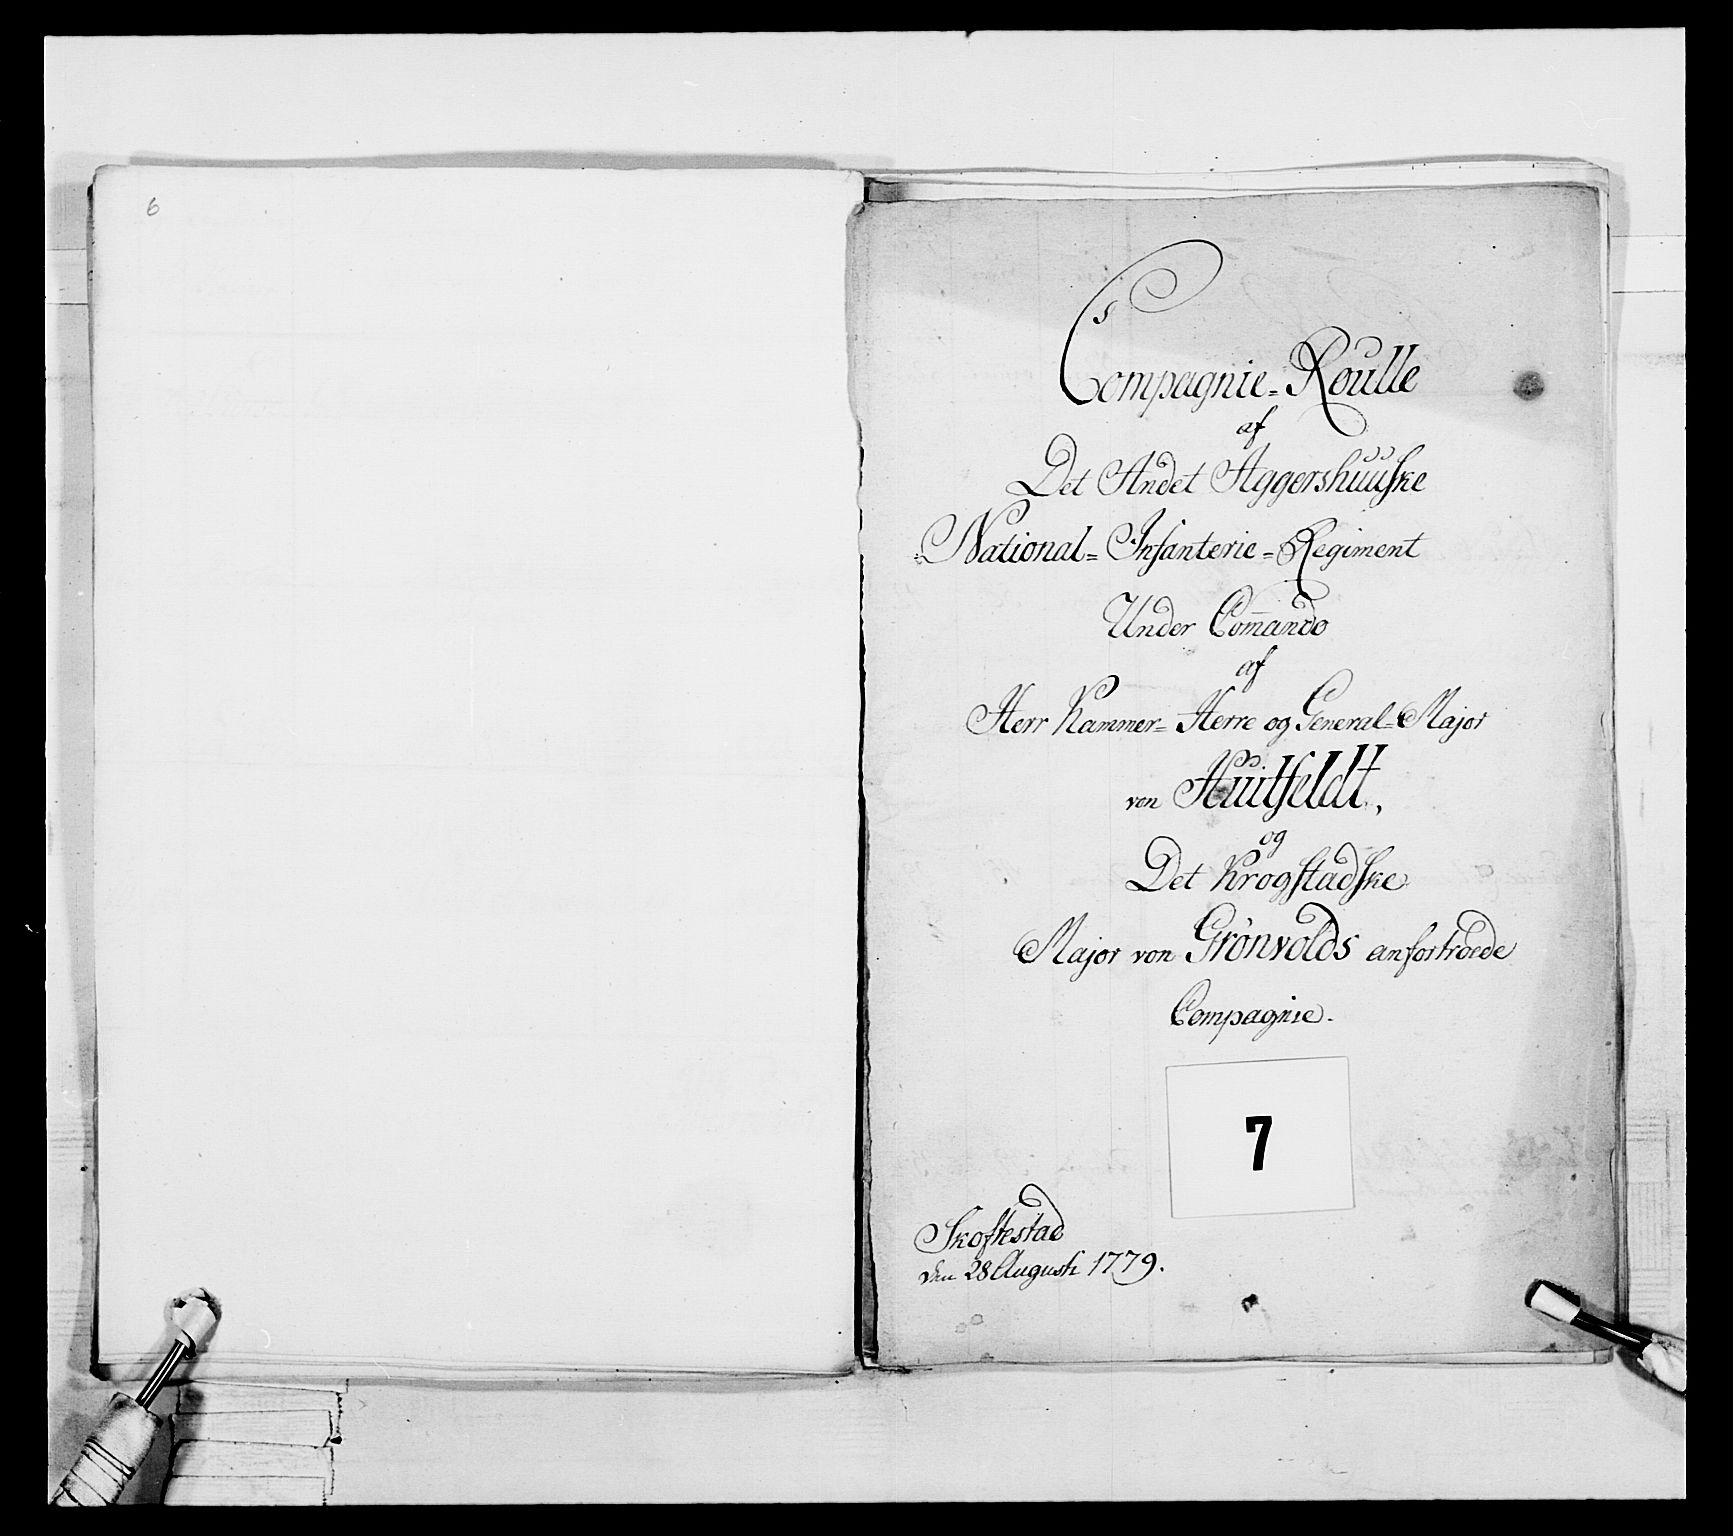 6
Compagnie=Roulle
af
Det Andet Aggershuuske
National=Infanterie=Regiment
Under Com̄ando
af
Herr Kammer=Herre og General=Major
von Huitfeldt,
og
Det Krogstadske
Major von Grönvolds anfortroede
Compagnie.
7
Skoftestad
den 28 August 1779.